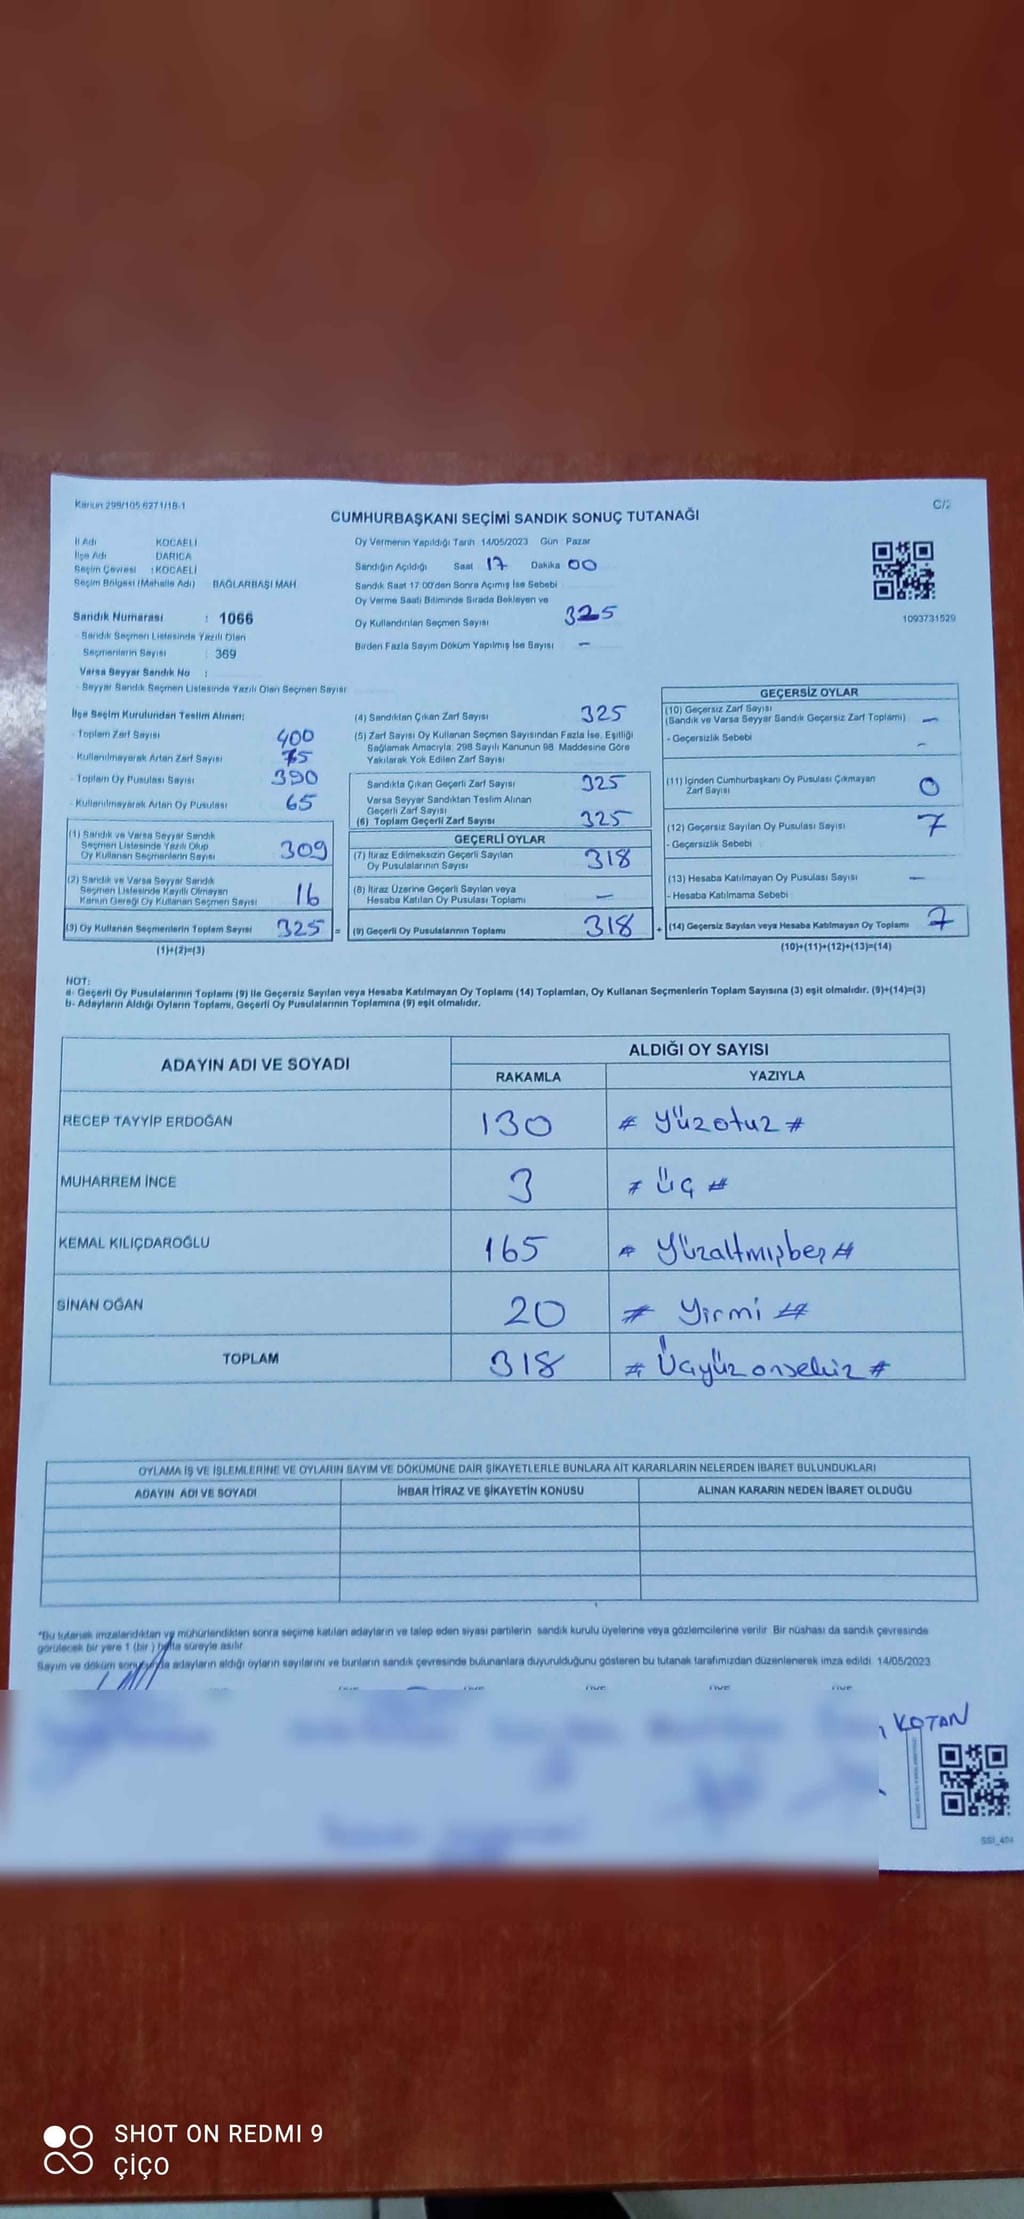 Kanun 298/105-6271/18-1
C/2
CUMHURBAŞKANI SEÇİMİ SANDIK SONUÇ TUTANAĞI
İl Adı KOCAELİ
İlçe Adı DARICA
Seçim Çevresi : KOCAELİ
Seçim Bölgesi (Mahalle Adı) BAĞLARBAŞI MAH
Sandık Numarası : 1066
Sandık Seçmen Listesinde Yazılı Olan
Seçmenlerin Sayısı : 369
Varsa Seyyar Sandık No :
Seyyar Sandık Seçmen Listesinde Yazılı Olan Seçmen Sayısı
Oy Vermenin Yapıldığı Tarih 14/05/2023 Gün Pazar
Sandığın Açıldığı Saat 17 Dakika 00
Sandık Saat 17:00'den Sonra Açımış İse Sebebi
Oy Verme Saati Bitiminde Sırada Bekleyen ve
Oy Kullandırılan Seçmen Sayısı 325
Birden Fazla Sayım Döküm Yapılmış İse Sayısı -
1093731529
İlçe Seçim Kurulundan Teslim Alınan:
- Toplam Zarf Sayısı 400
- Kullanılmayarak Artan Zarf Sayısı 75
- Toplam Oy Pusulası Sayısı 390
- Kullanılmayarak Artan Oy Pusulası 65
(1) Sandık ve Varsa Seyyar Sandık
Seçmen Listesinde Yazılı Olup
Oy Kullanan Seçmenlerin Sayısı 309
(2) Sandık ve Varsa Seyyar Sandık
Seçmen Listesinde Kayıtlı Olmayan
Kanun Gereği Oy Kullanan Seçmen Sayısı 16
(3) Oy Kullanan Seçmenlerin Toplam Sayısı 325 =
(1)+(2)=(3)
(4) Sandıktan Çıkan Zarf Sayısı 325
(5) Zarf Sayısı Oy Kullanan Seçmen Sayısından Fazla İse, Eşitliği
Sağlamak Amacıyla, 298 Sayılı Kanunun 98. Maddesine Göre
Yakılarak Yok Edilen Zarf Sayısı
Sandıkta Çıkan Geçerli Zarf Sayısı 325
Varsa Seyyar Sandıktan Teslim Alınan
Geçerli Zarf Sayısı
(6) Toplam Geçerli Zarf Sayısı 325
GEÇERLİ OYLAR
(7) İtiraz Edilmeksizin Geçerli Sayılan
Oy Pusulalarının Sayısı 318
(8) İtiraz Üzerine Geçerli Sayılan veya
Hesaba Katılan Oy Pusulası Toplamı -
(9) Geçerli Oy Pusulalarının Toplamı 318 +
GEÇERSİZ OYLAR
(10) Geçersiz Zarf Sayısı
(Sandık ve Varsa Seyyar Sandık Geçersiz Zarf Toplamı) -
- Geçersizlik Sebebi -
(11) İçinden Cumhurbaşkanı Oy Pusulası Çıkmayan
Zarf Sayısı 0
(12) Geçersiz Sayılan Oy Pusulası Sayısı 7
- Geçersizlik Sebebi
(13) Hesaba Katılmayan Oy Pusulası Sayısı -
- Hesaba Katılmama Sebebi
(14) Geçersiz Sayılan veya Hesaba Katılmayan Oy Toplamı 7
(10)+(11)+(12)+(13)=(14)
NOT:
a- Geçerli Oy Pusulalarının Toplamı (9) ile Geçersiz Sayılan veya Hesaba Katılmayan Oy Toplamı (14) Toplamları, Oy Kullanan Seçmenlerin Toplam Sayısına (3) eşit olmalıdır. (9)+(14)=(3)
b- Adayların Aldığı Oyların Toplamı, Geçerli Oy Pusulalarının Toplamına (9) eşit olmalıdır.
ADAYIN ADI VE SOYADI ALDIĞI OY SAYISI
RAKAMLA YAZIYLA
RECEP TAYYİP ERDOĞAN 130 # Yüzotuz #
MUHARREM İNCE 3 # Üç #
KEMAL KILIÇDAROĞLU 165 # Yüzaltmışbeş #
SİNAN OĞAN 20 # Yirmi #
TOPLAM 318 # Üçyüz onsekiz #
OYLAMA İŞ VE İŞLEMLERİNE VE OYLARIN SAYIM VE DÖKÜMÜNE DAİR ŞİKAYETLERLE BUNLARA AİT KARARLARIN NELERDEN İBARET BULUNDUKLARI
ADAYIN ADI VE SOYADI İHBAR İTİRAZ VE ŞİKAYETİN KONUSU ALINAN KARARIN NEDEN İBARET OLDUĞU
*Bu tutanak imzalandıktan ve mühürlendikten sonra seçime katılan adayların ve talep eden siyasi partilerin sandık kurulu üyelerine veya gözlemcilerine verilir. Bir nüshası da sandık çevresinde
görülecek bir yere 1 (bir) hafta süreyle asılır.
Sayım ve döküm sonucunda adayların aldığı oyların sayılarını ve bunların sandık çevresinde bulunanlara duyurulduğunu gösteren bu tutanak tarafımızdan düzenlenerek imza edildi. 14/05/2023
KOTAN
SSI_404
SHOT ON REDMI 9
ÇİÇO